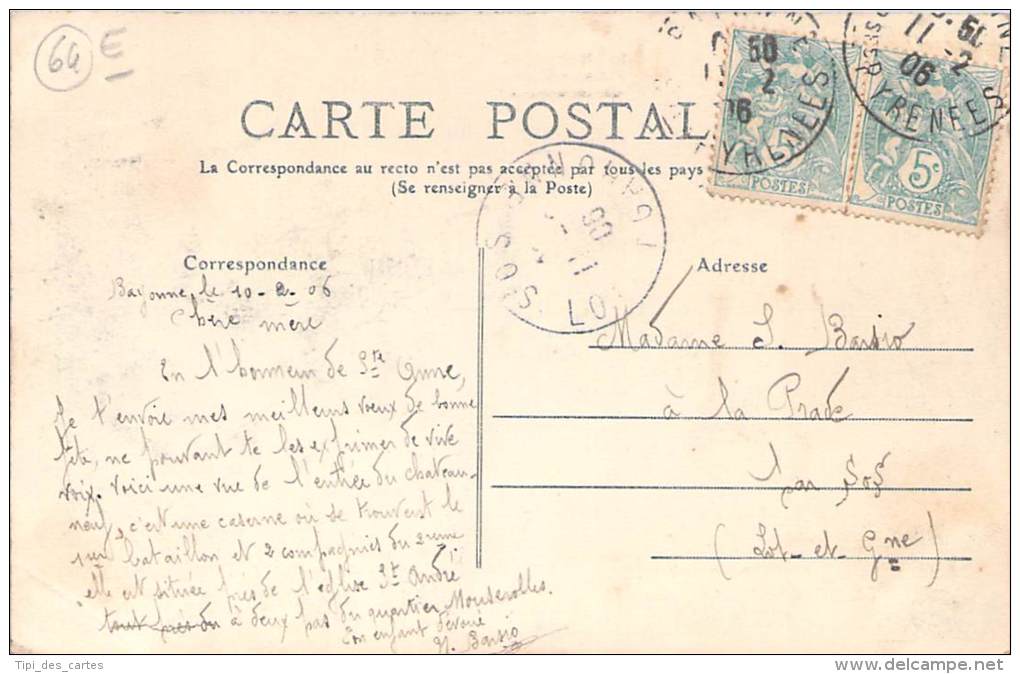 64 E
CARTE POSTAL
La Correspondance au recto n'est pas acceptée par tous les pays
(Se renseigner à la Poste)
50
2
06
YRENEES
POSTES
11 50
2
06
PYRENEES
5c
POSTES
SOS LOT
11
06
Correspondance
Adresse
Bayonne, le 10-2-06
Chère mère
En l'honneur de Ste Anne,
Je t'envoie mes meilleurs voeux de bonne
fête, ne pouvant te les exprimer de vive
voix. Voici une vue de l'entrée du chateau-
neuf, c'est une caserne où se trouvent le
1er bataillon et 2 compagnies du 2eme
elle est située près de l'église St André
tout près du à deux pas du quartier Mouserolles.
Ton enfant dévoué
Madame
à la Prade
par Sos
(Lot-et-Gne)
Tipi_des_cartes
www.delcampe.net